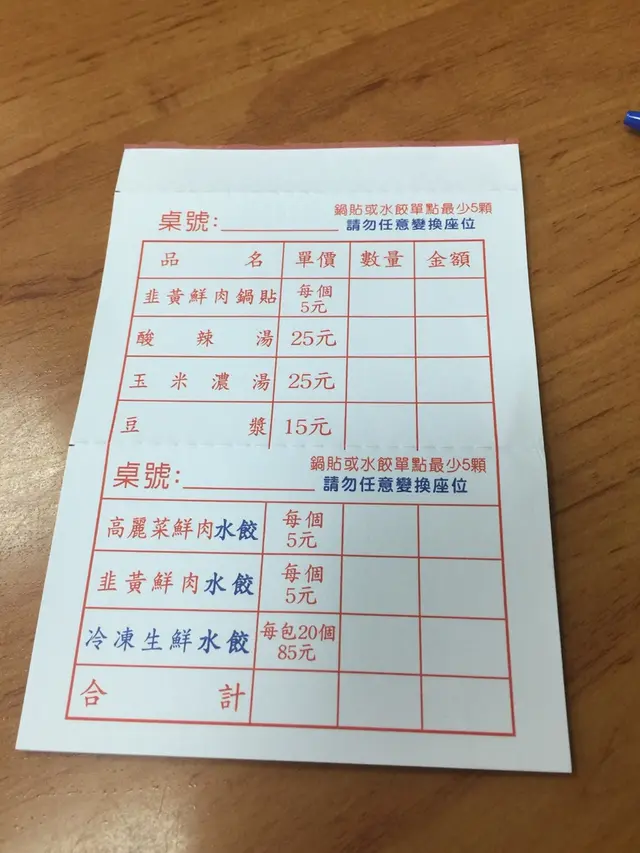 鍋貼或水餃單點最少5顆
桌號: 請勿任意變換座位
品名 單價 數量 金額
韭黃鮮肉鍋貼 每個5元
酸辣湯 25元
玉米濃湯 25元
豆漿 15元
鍋貼或水餃單點最少5顆
桌號: 請勿任意變換座位
高麗菜鮮肉水餃 每個5元
韭黃鮮肉水餃 每個5元
冷凍生鮮水餃 每包20個85元
合計